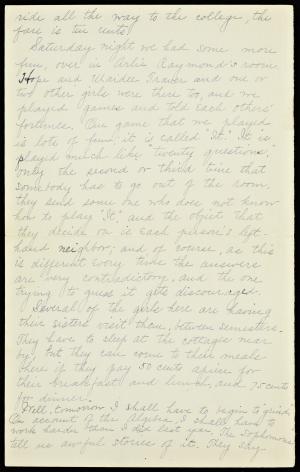 ride all the way to the college, the
fare is ten cents.
Saturday night we had some more
fun, over in Arlie Raymond's room.
Hope and Waidee Traver and one or
two other girls were there too, and we
played games and told each others'
fortunes. One game that we played
is lots of fun; it is called "It." It is
played much like "twenty questions,"
only the second or third time that
somebody has to go out of the room,
they send some one who does not know
how to play "It," and the object that
they decide on is each person's left-
hand neighbor; and of course, as this
is different every time the answers
are very contradictory, and the one
trying to guess it gets discouraged.
Several of the girls here are having
their sisters visit them, between semesters.
They have to sleep at the cottages near
by, but they can come to their meals
here if they pay 50 cents apiece for
their breakfast and lunch, and 75 cents
for dinner.
Well, tomorrow I shall have to begin to "grind."
On account of the Algebra, I shall have to
work harder than I did last year. The Sophomores
tell us awful stories of it. They say